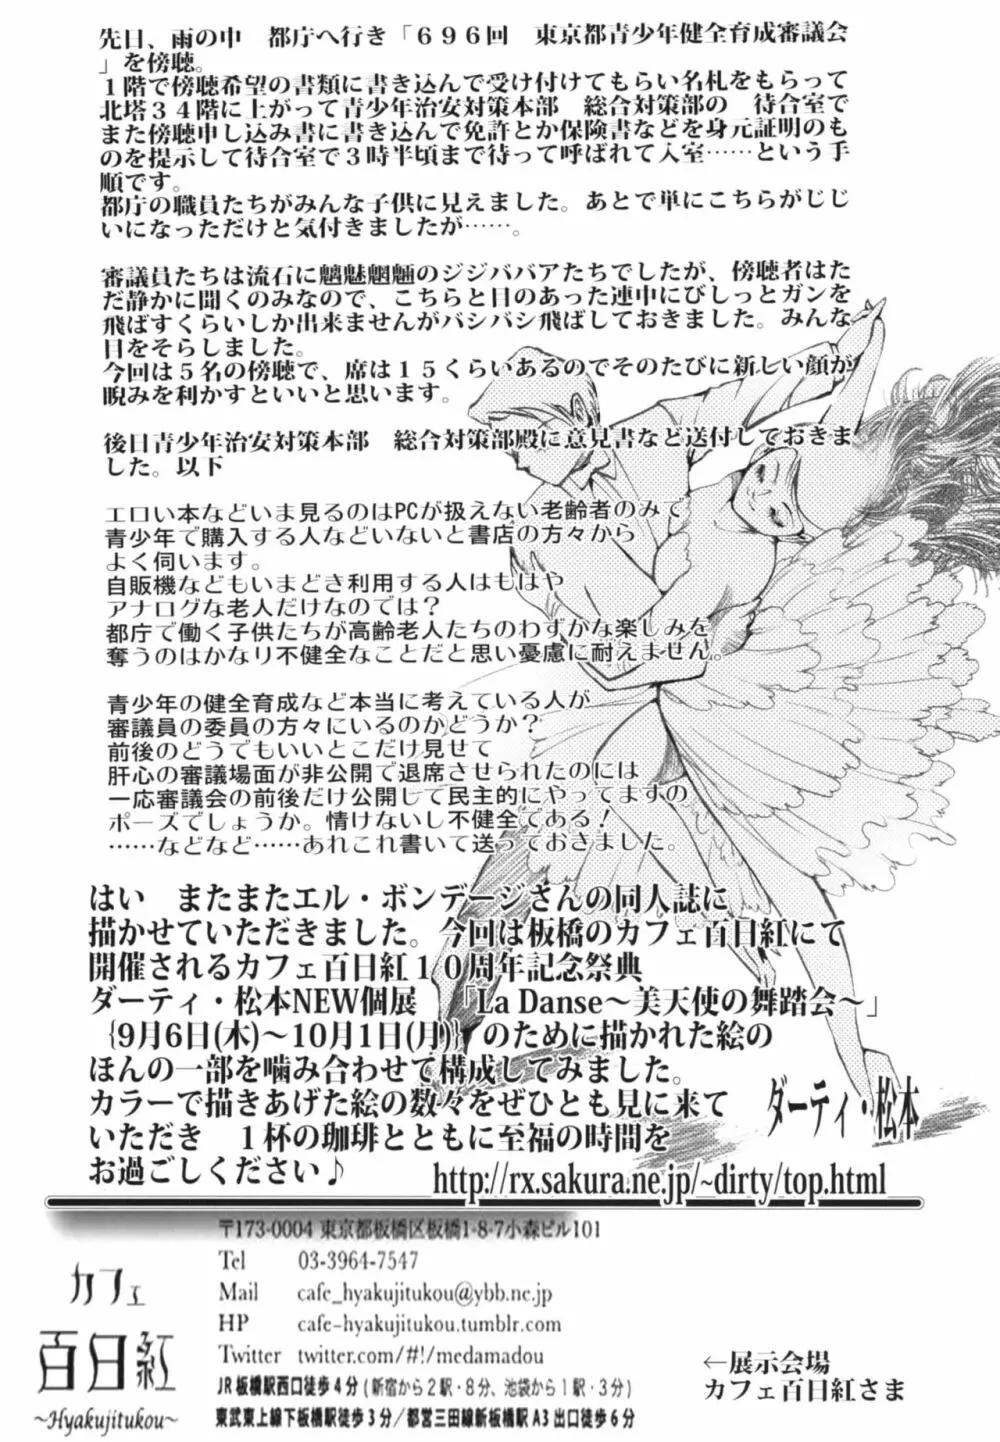 先日、雨の中　都庁へ行き「６９６回　東京都青少年健全育成審議会
」を傍聴。
１階で傍聴希望の書類に書き込んで受け付けてもらい名札をもらって
北塔３４階に上がって青少年治安対策本部　総合対策部の　待合室で
また傍聴申し込み書に書き込んで免許とか保険書などを身元証明のも
のを提示して待合室で３時半頃まで待って呼ばれて入室……という手
順です。
都庁の職員たちがみんな子供に見えました。あとで単にこちらがじじ
いになっただけと気付きましたが……。
審議員たちは流石に魑魅魍魎のジジババアたちでしたが、傍聴者はた
だ静かに聞くのみなので、こちらと目のあった連中にびしっとガンを
飛ばすくらいしか出来ませんがバシバシ飛ばしておきました。みんな
目をそらしました。
今回は５名の傍聴で、席は１５くらいあるのでそのたびに新しい顔が
睨みを利かすといいと思います。
後日青少年治安対策本部　総合対策部殿に意見書など送付しておきま
した。以下
エロい本などいま見るのはPCが扱えない老齢者のみで
青少年で購入する人などいないと書店の方々から
よく伺います。
自販機などもいまどき利用する人はもはや
アナログな老人だけなのでは？
都庁で働く子供たちが高齢老人たちのわずかな楽しみを
奪うのはかなり不健全なことだと思い憂慮に耐えません。
青少年の健全育成など本当に考えている人が
審議員の委員の方々にいるのかどうか？
前後のどうでもいいとこだけ見せて
肝心の審議場面が非公開で退席させられたのには
一応審議会の前後だけ公開して民主的にやってますの
ポーズでしょうか。情けないし不健全である！
……などなど……あれこれ書いて送っておきました。
はい　またまたエル・ボンデージさんの同人誌に
描かせていただきました。今回は板橋のカフェ百日紅にて
開催されるカフェ百日紅１０周年記念祭典
ダーティ・松本NEW個展　「La Danse～美天使の舞踏会～」
｛9月6日(木)～10月1日(月)｝のために描かれた絵の
ほんの一部を噛み合わせて構成してみました。
カラーで描きあげた絵の数々をぜひとも見に来て
いただき　１杯の珈琲とともに至福の時間を
お過ごしください♪
ダーティ・松本
http://rx.sakura.ne.jp/~dirty/top.html
〒173-0004 東京都板橋区板橋1-8-7小森ビル101
Tel 03-3964-7547
Mail cafe_hyakujitukou@ybb.ne.jp
HP cafe-hyakujitukou.tumblr.com
Twitter twitter.com/#!/medamadou
JR板橋駅西口徒歩４分（新宿から２駅・８分、池袋から１駅・３分）
東武東上線下板橋駅徒歩３分／都営三田線新板橋駅A3出口徒歩６分
カフェ
百日紅
~Hyakujitukou~
←展示会場
カフェ百日紅さま